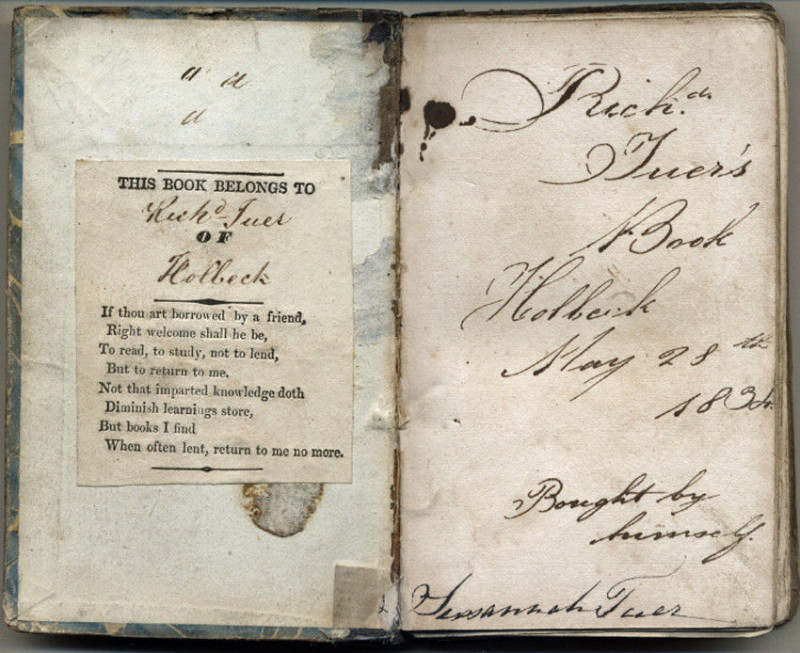 a a
a
THIS BOOK BELONGS TO
Richd Tuer
OF
Holbeck
If thou art borrowed by a friend,
Right welcome shall he be,
To read, to study, not to lend,
But to return to me.
Not that imparted knowledge doth
Diminish learnings store,
But books I find
When often lent, return to me no more.
Richd.
Tuer's
Book
Holbeck
May 28th
Bought by
himself.
Susannah Tuer